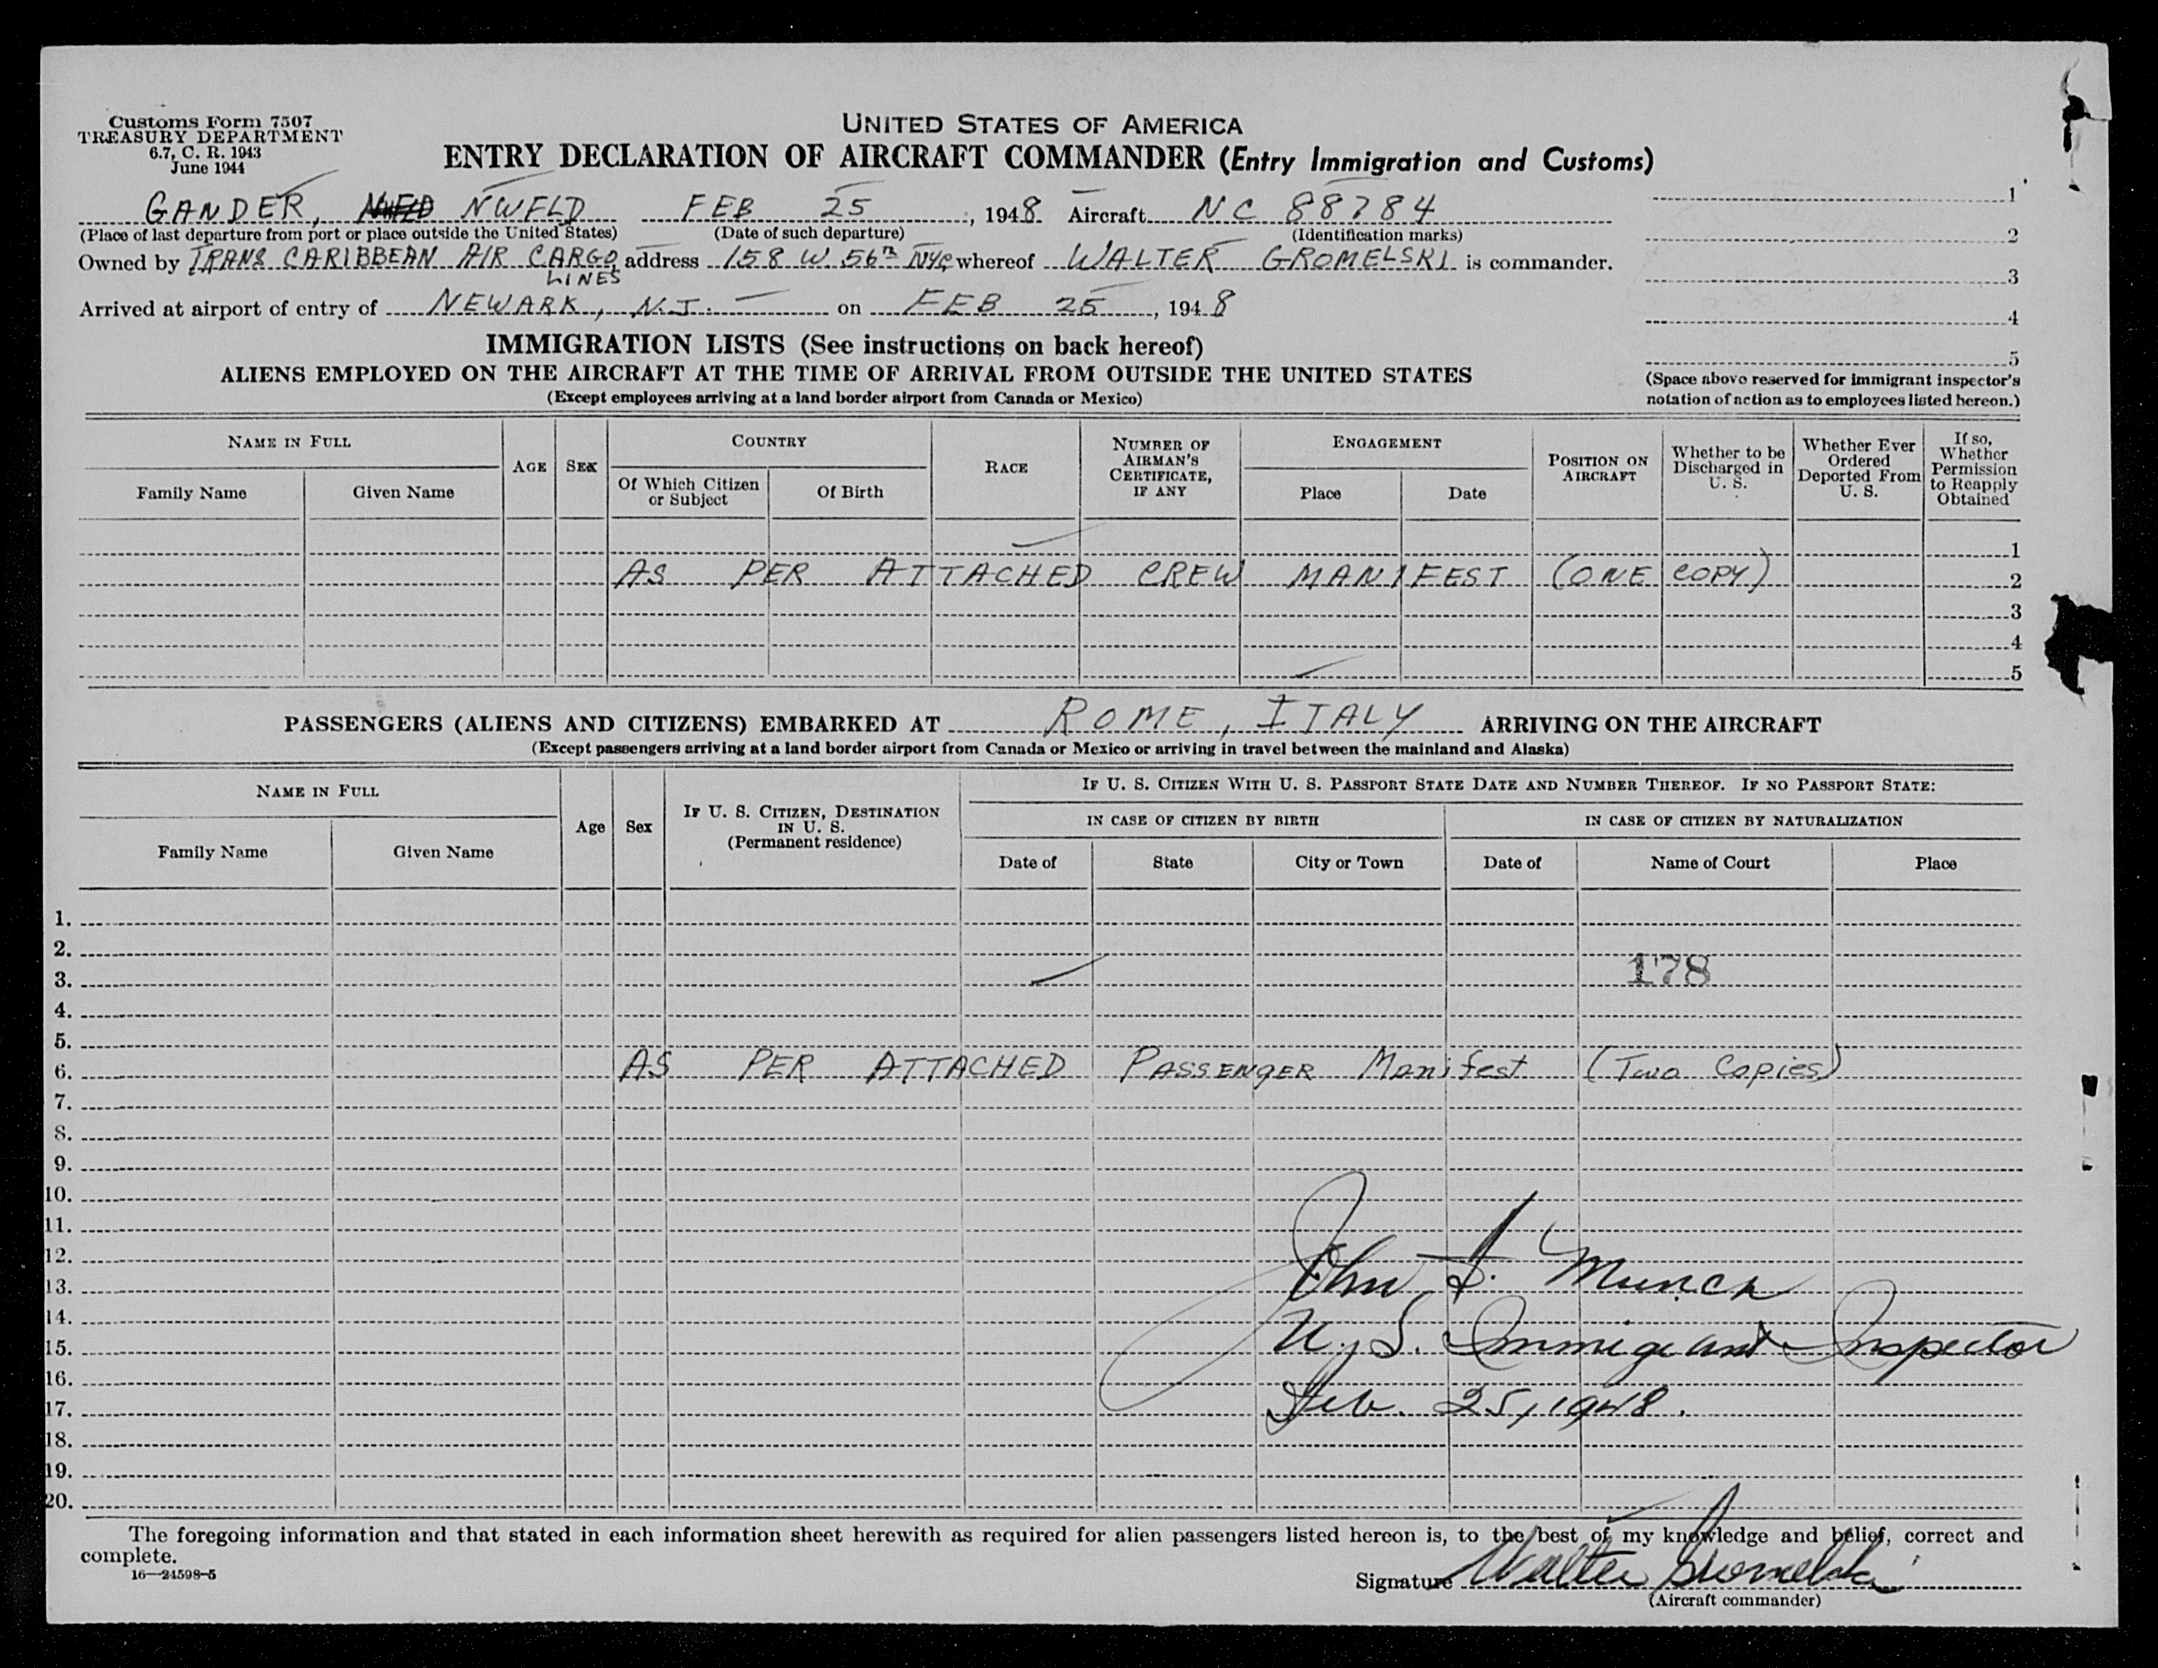 Customs Form 7507
TREASURY DEPARTMENT
6.7, C. R. 1943
June 1944
UNITED STATES OF AMERICA
ENTRY DECLARATION OF AIRCRAFT COMMANDER (Entry Immigration and Customs)
GANDER, NWFLD FEB 25, 1948 Aircraft NC 88784
(Place of last departure from port or place outside the United States) (Date of such departure) (Identification marks)
Owned by TRANS CARIBBEAN AIR CARGO LINES, address 158 W 56th NYC whereof WALTER GROMELSKI is commander.
Arrived at airport of entry of NEWARK, N.J. on FEB 25, 1948
1
2
3
4
5
(Space above reserved for immigrant inspector's
notation of action as to employees listed hereon.)
IMMIGRATION LISTS (See instructions on back hereof)
ALIENS EMPLOYED ON THE AIRCRAFT AT THE TIME OF ARRIVAL FROM OUTSIDE THE UNITED STATES
(Except employees arriving at a land border airport from Canada or Mexico)
NAME IN FULL
Family Name
Given Name
AGE
SEX
COUNTRY
Of Which Citizen or Subject
Of Birth
RACE
NUMBER OF AIRMAN'S CERTIFICATE, IF ANY
ENGAGEMENT
Place
Date
POSITION ON AIRCRAFT
Whether to be Discharged in U. S.
Whether Ever Ordered Deported From U. S.
If so, Whether Permission to Reapply Obtained
1
AS PER ATTACHED CREW MANIFEST (ONE COPY) 2
3
4
5
PASSENGERS (ALIENS AND CITIZENS) EMBARKED AT ROME, ITALY ARRIVING ON THE AIRCRAFT
(Except passengers arriving at a land border airport from Canada or Mexico or arriving in travel between the mainland and Alaska)
NAME IN FULL
Family Name
Given Name
Age
Sex
IF U. S. CITIZEN, DESTINATION IN U. S.
(Permanent residence)
IF U. S. CITIZEN WITH U. S. PASSPORT STATE DATE AND NUMBER THEREOF. IF NO PASSPORT STATE:
IN CASE OF CITIZEN BY BIRTH
IN CASE OF CITIZEN BY NATURALIZATION
Date of
State
City or Town
Date of
Name of Court
Place
1.
2.
3. 178
4.
5.
6. AS PER ATTACHED PASSENGER Manifest (Two Copies)
7.
8.
9.
10.
11.
12.
13. John F. Munch
14.
15. U. S. Immigrant Inspector
16.
17. Feb. 25, 1948.
18.
19.
20.
The foregoing information and that stated in each information sheet herewith as required for alien passengers listed hereon is, to the best of my knowledge and belief, correct and
complete.
16—24598-5
Signature Walter Gromelski
(Aircraft commander)